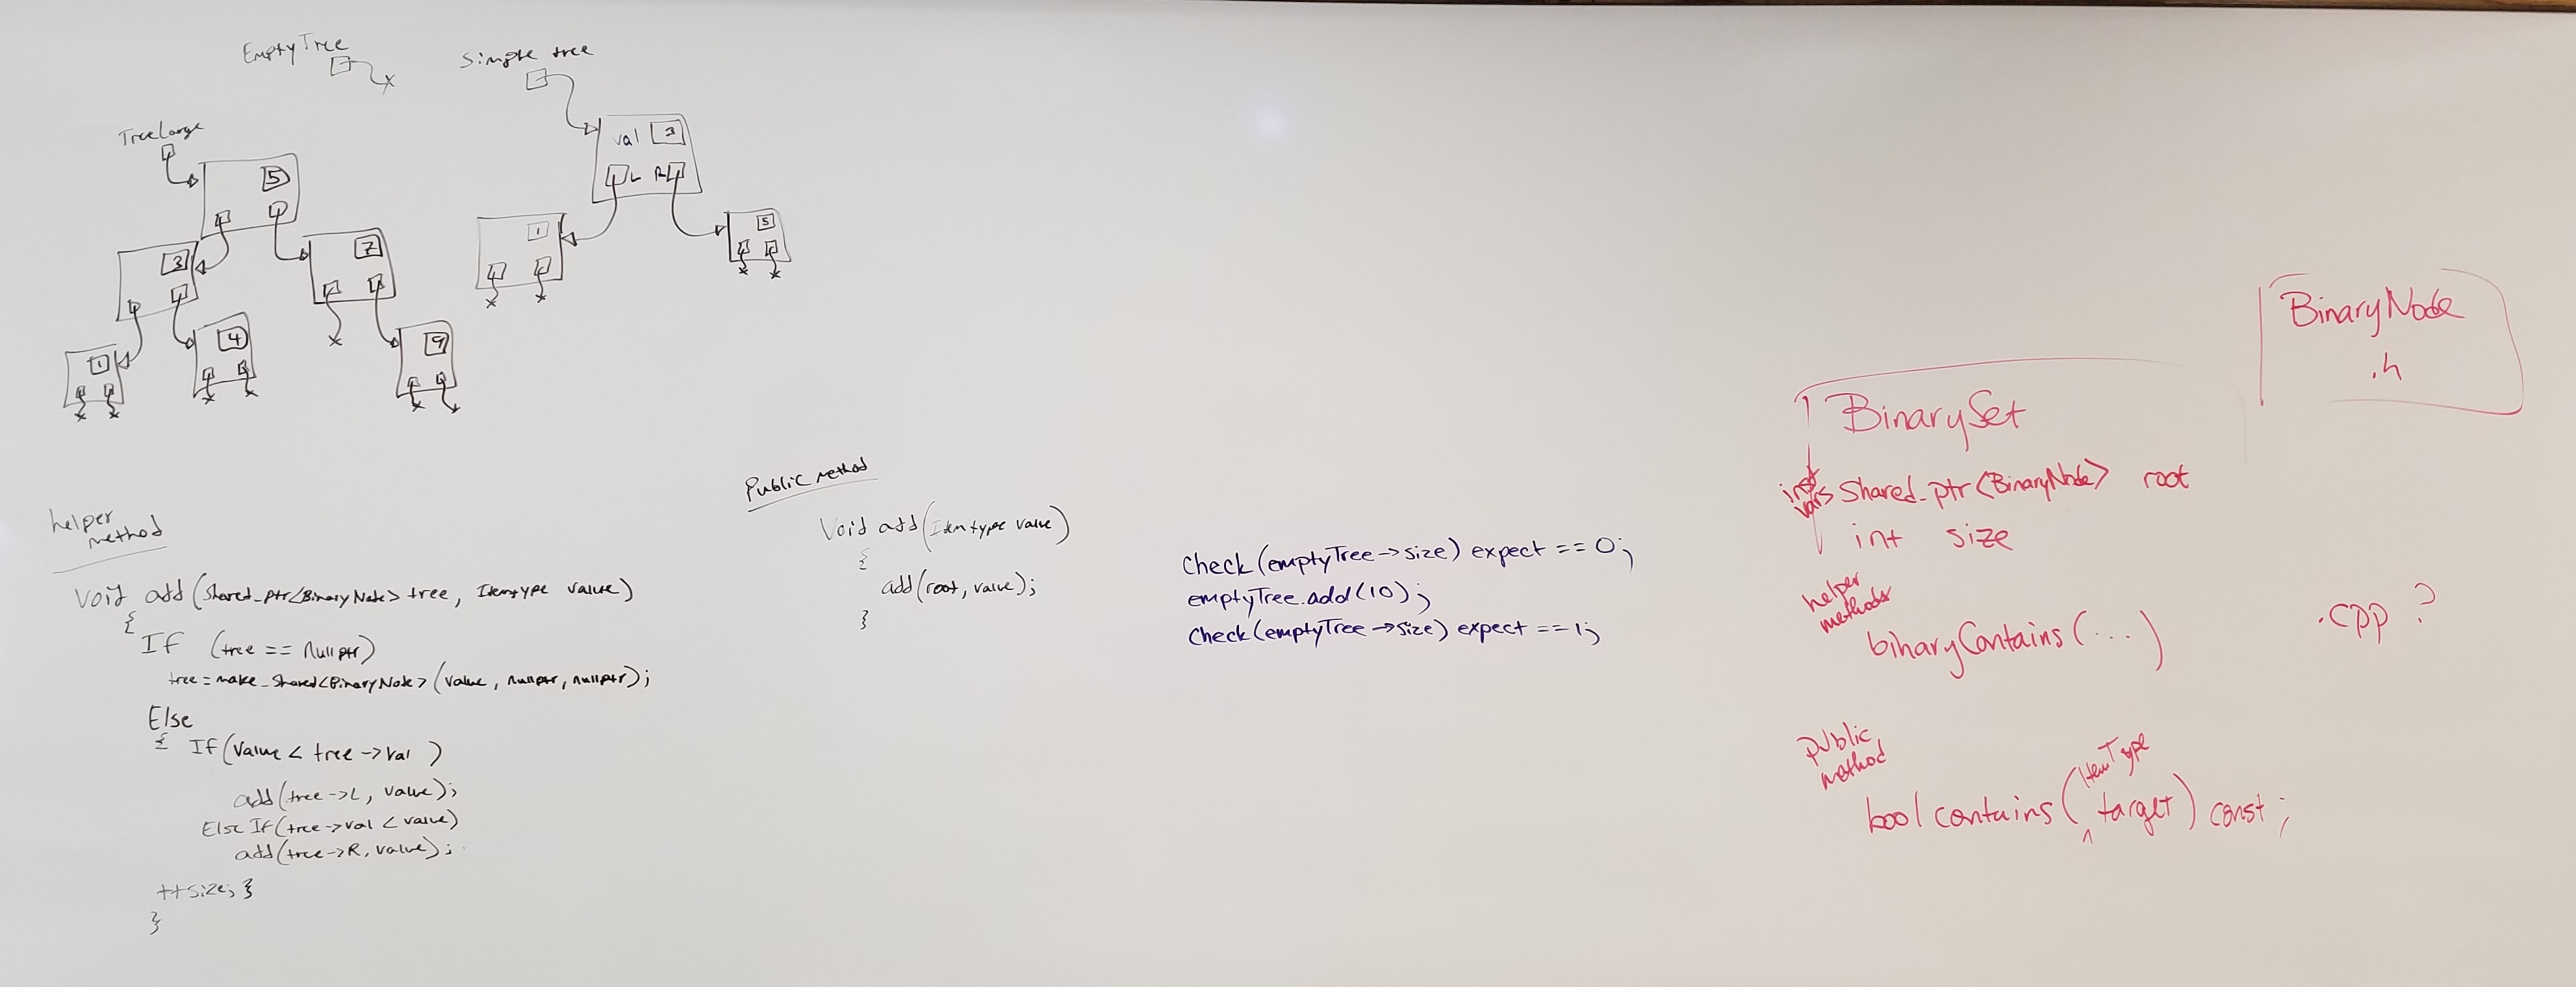 Empty Tree
Simple tree
TreeLarge
5
3
7
1
4
9
val 3
L R
1
5
helper
method
Void add(Shared_ptr<BinaryNode> tree, Itemtype value)
{
If (tree == Nullptr)
tree = make_Shared<BinaryNode>(value, nullptr, nullptr);
Else
{ If(value < tree->val )
add(tree->L, value);
Else If(tree->val < value)
add(tree->R, value);
++size; }
}
Public method
Void add(Itemtype value)
{
add(root, value);
}
Check(emptyTree->size) expect == 0;
emptyTree.add(10);
Check(emptyTree->size) expect == 1;
BinaryNode
.h
BinarySet
inst
vars
Shared_ptr<BinaryNode> root
int size
helper
methods
binaryContains(...)
.cpp ?
public
method
ItemType
bool contains(^ target) const;